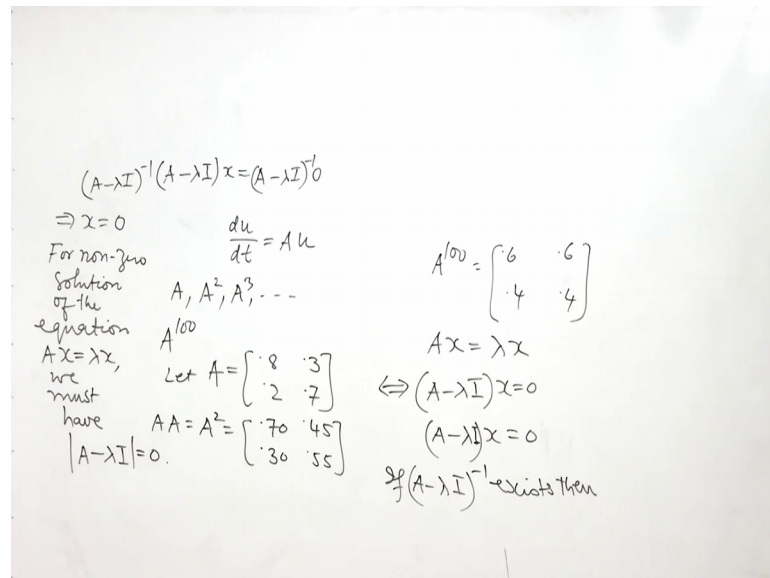 (A-λI)⁻¹(A-λI)x=(A-λI)⁻¹0
⇒ x=0
For non-zero
solution
of the
equation
AX=λx,
we
must
have
|A-λI|=0.
du/dt = Au
A, A², A³, ...
A¹⁰⁰
Let A = [·8 ·3
·2 ·7]
AA = A² = [·70 ·45
·30 ·55]
A¹⁰⁰ = [·6 ·6
·4 ·4]
Ax = λx
⇔ (A-λI)x=0
(A-λI)x=0
If (A-λI)⁻¹ exists then